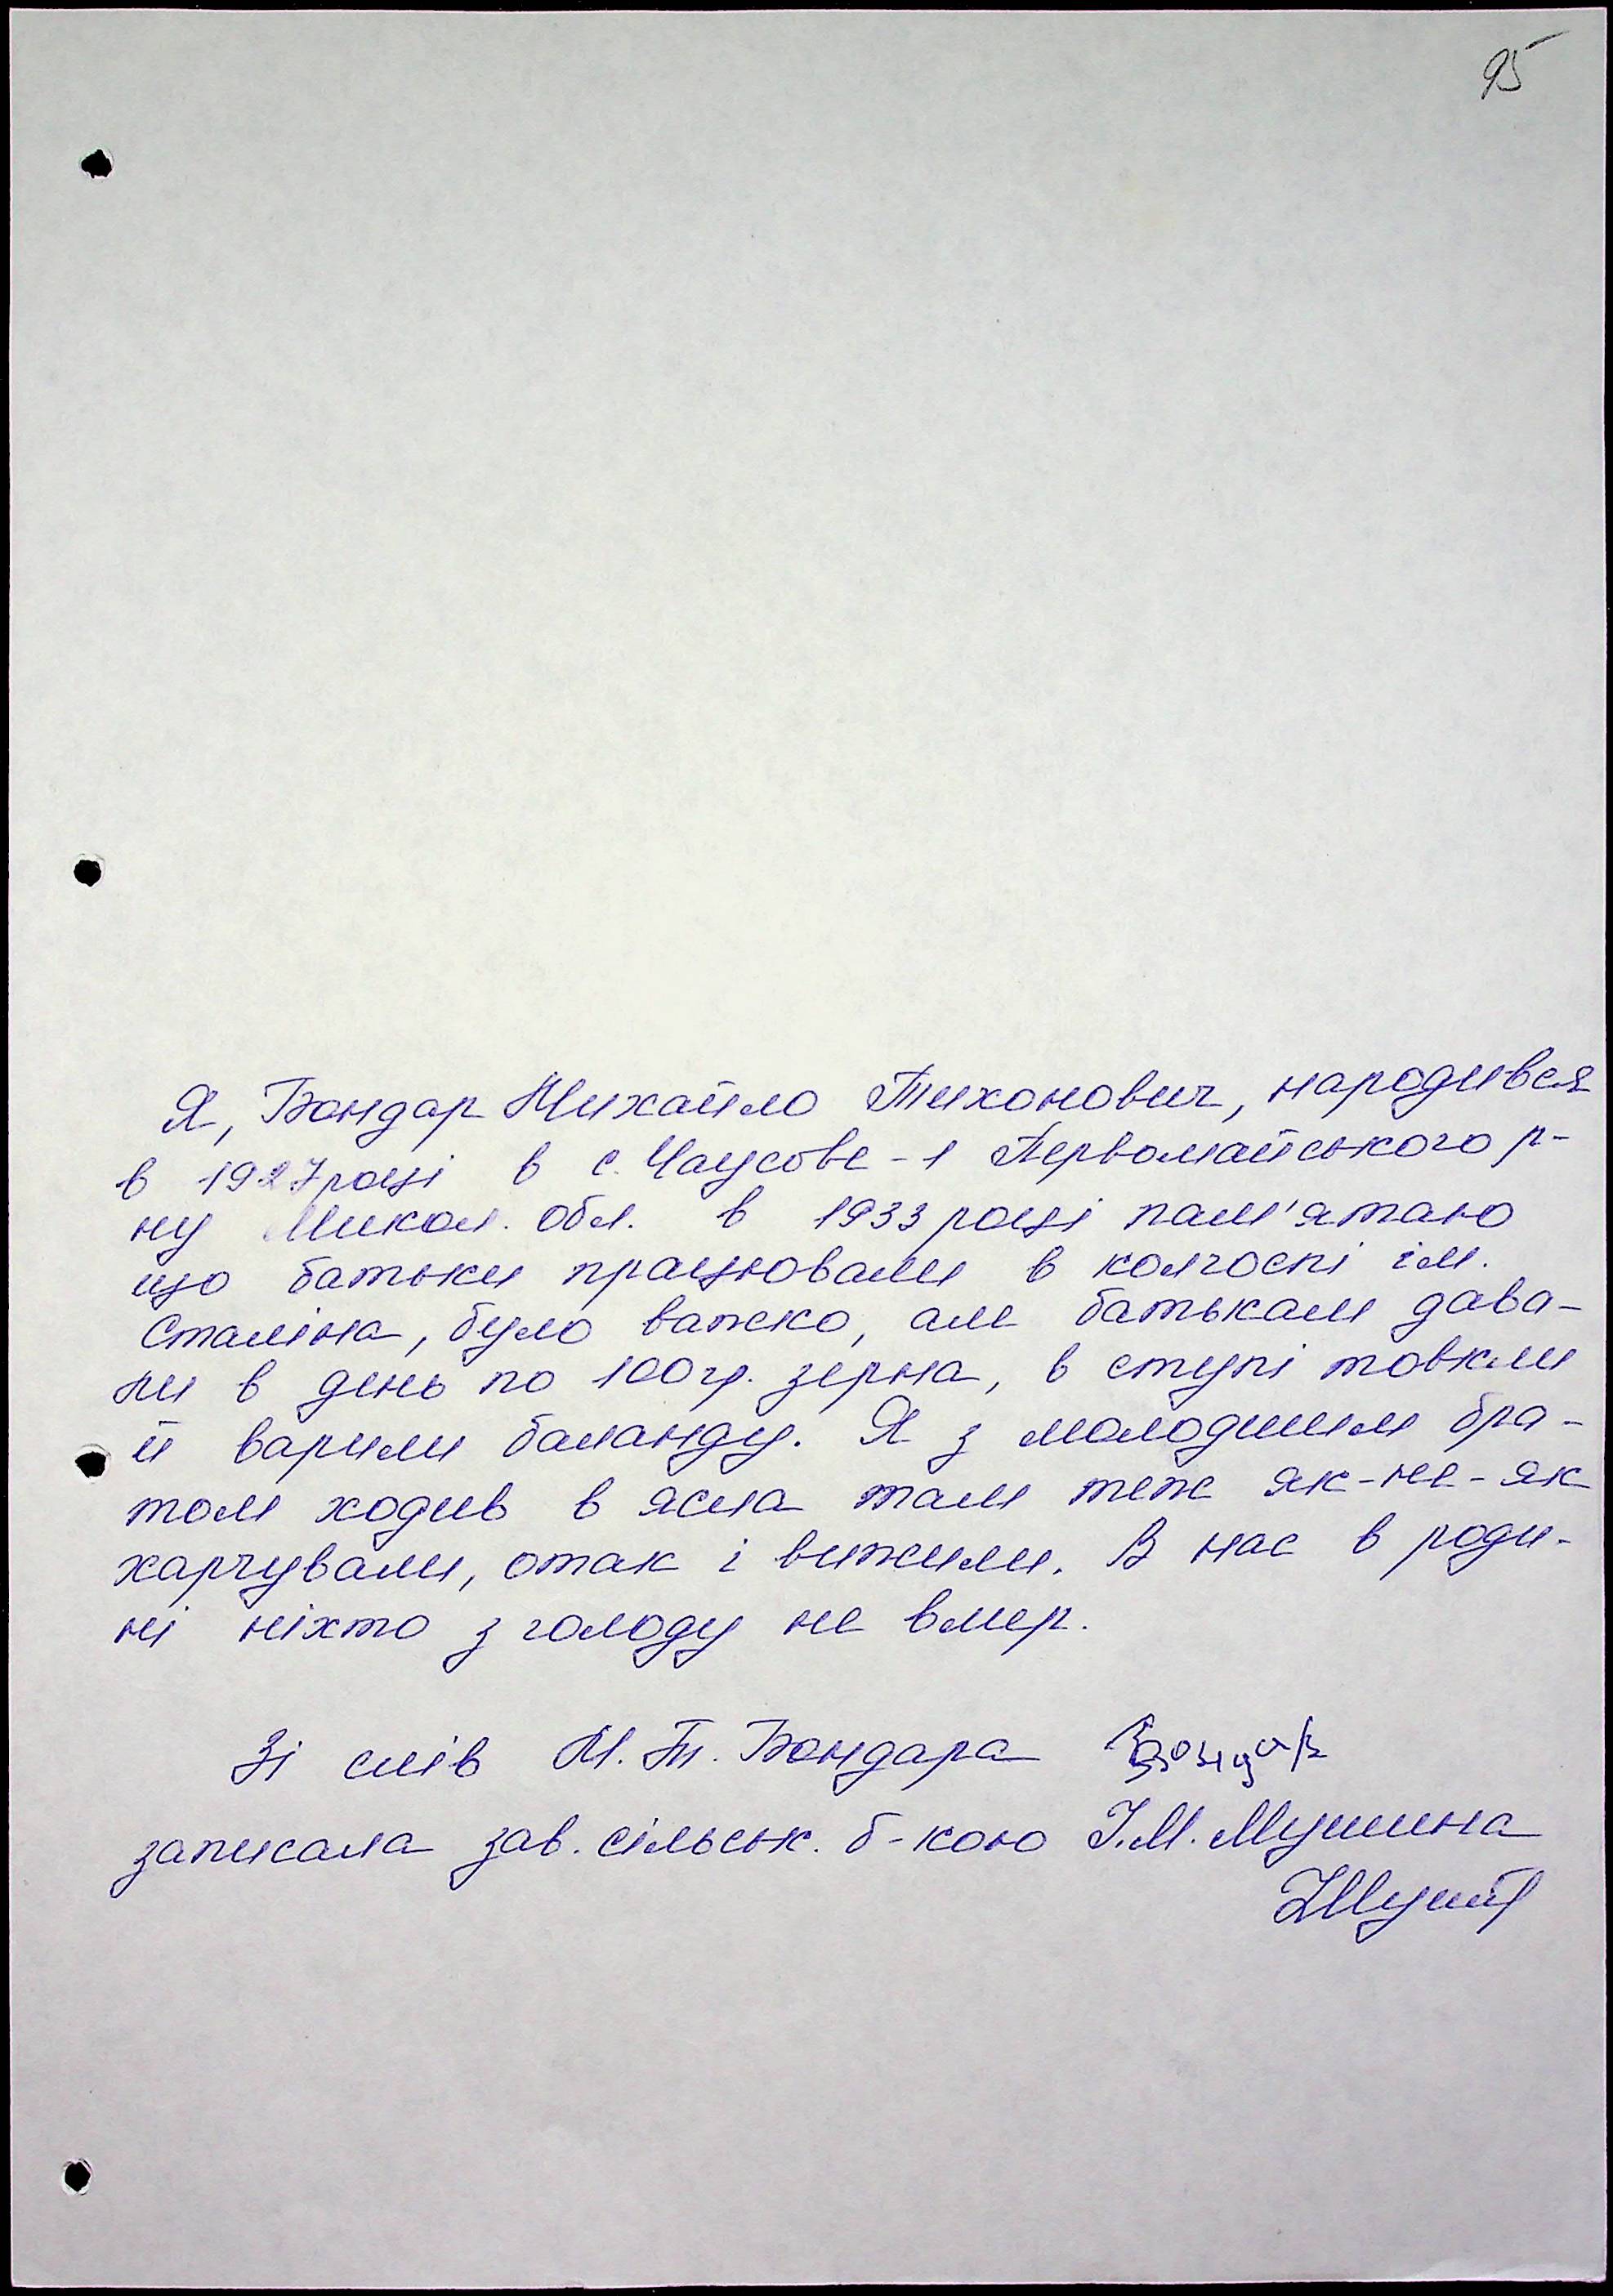 95
Я, Бондар Михайло Тихонович, народився
в 1927 році в с. Чаусове-1 Первомайського р-
ну Микол. обл. в 1933 році пам'ятаю
що батьки працювали в колгоспі ім.
Сталіна, було важко, але батькам дава-
ли в день по 100 гр. зерна, в ступі товкли
й варили баланду. Я з молодшим бра-
том ходив в ясла там теж як-не-як
харчували, отак і вижили. В нас в роди-
ні ніхто з голоду не вмер.
Зі слів М. Т. Бондара Бондар
записала зав. сільськ. б-кою І.М. Мушина